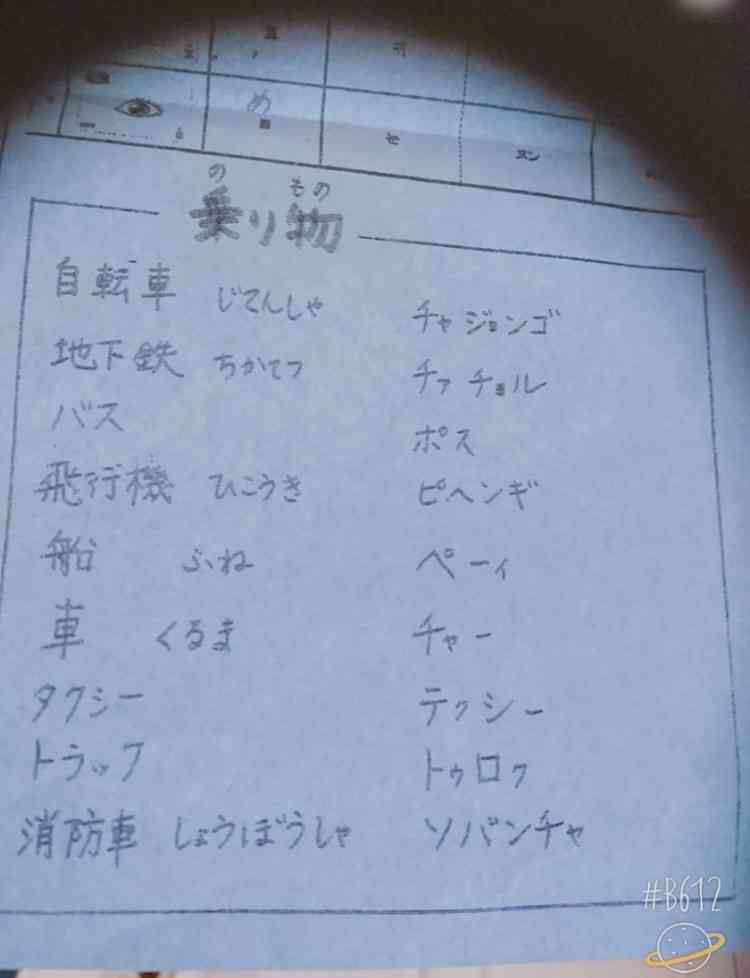 め
目
セ
ヌン
のもの
乗り物
自転車 じてんしゃ チャジョンゴ
地下鉄 ちかてつ チァチョル
バス ポス
飛行機 ひこうき ピヘンギ
船 ふね ペーィ
車 くるま チャー
タクシー テクシー
トラック トゥロク
消防車 しょうぼうしゃ ソバンチャ
#B612